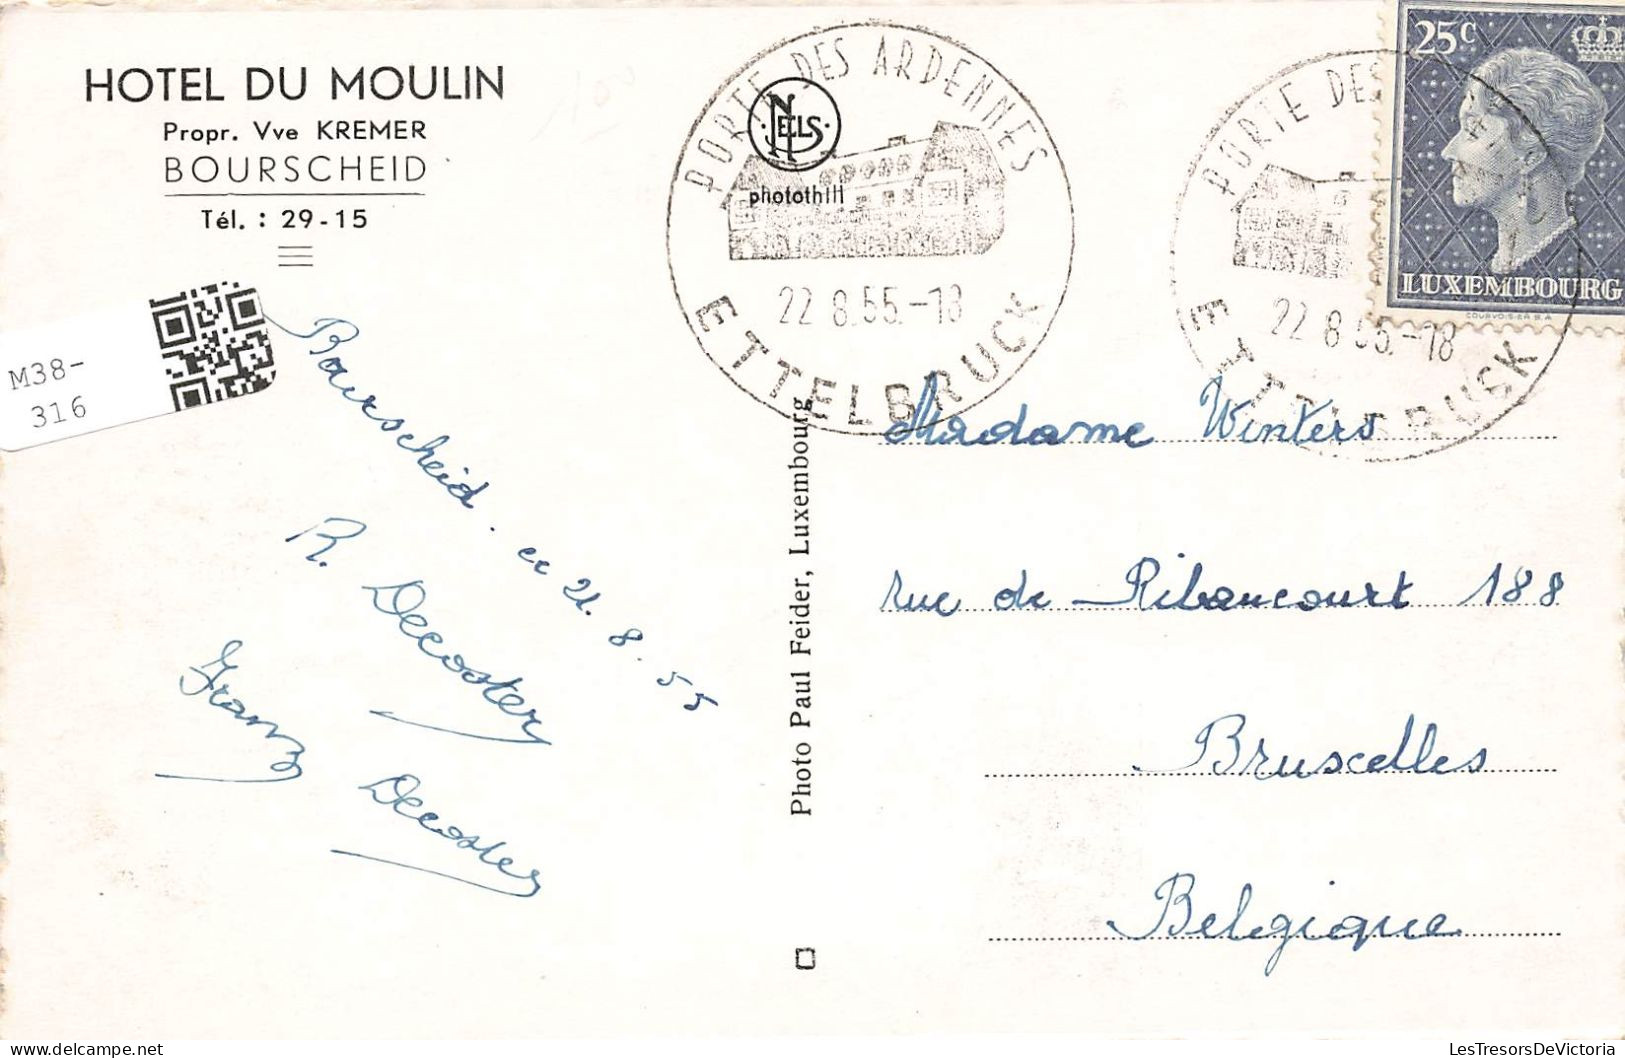 HOTEL DU MOULIN
Propr. Vve KREMER
BOURSCHEID
Tél. : 29-15
M38-
316
Bourscheid. ce 21. 8. 55
R. Decoster
Franz Decoster
Photo Paul Feider, Luxembourg
NELS
photothill
PORTE DES ARDENNES
22.8.55.-18
ETTELBRUCK
PORTE DES ARDENNES
22 8 55.-18
ETTELBRUCK
25c
LUXEMBOURG
COURVOISIER S.A.
Madame Winters
rue de Ribaucourt 188
Bruxelles
Belgique
LesTresorsDeVictoria